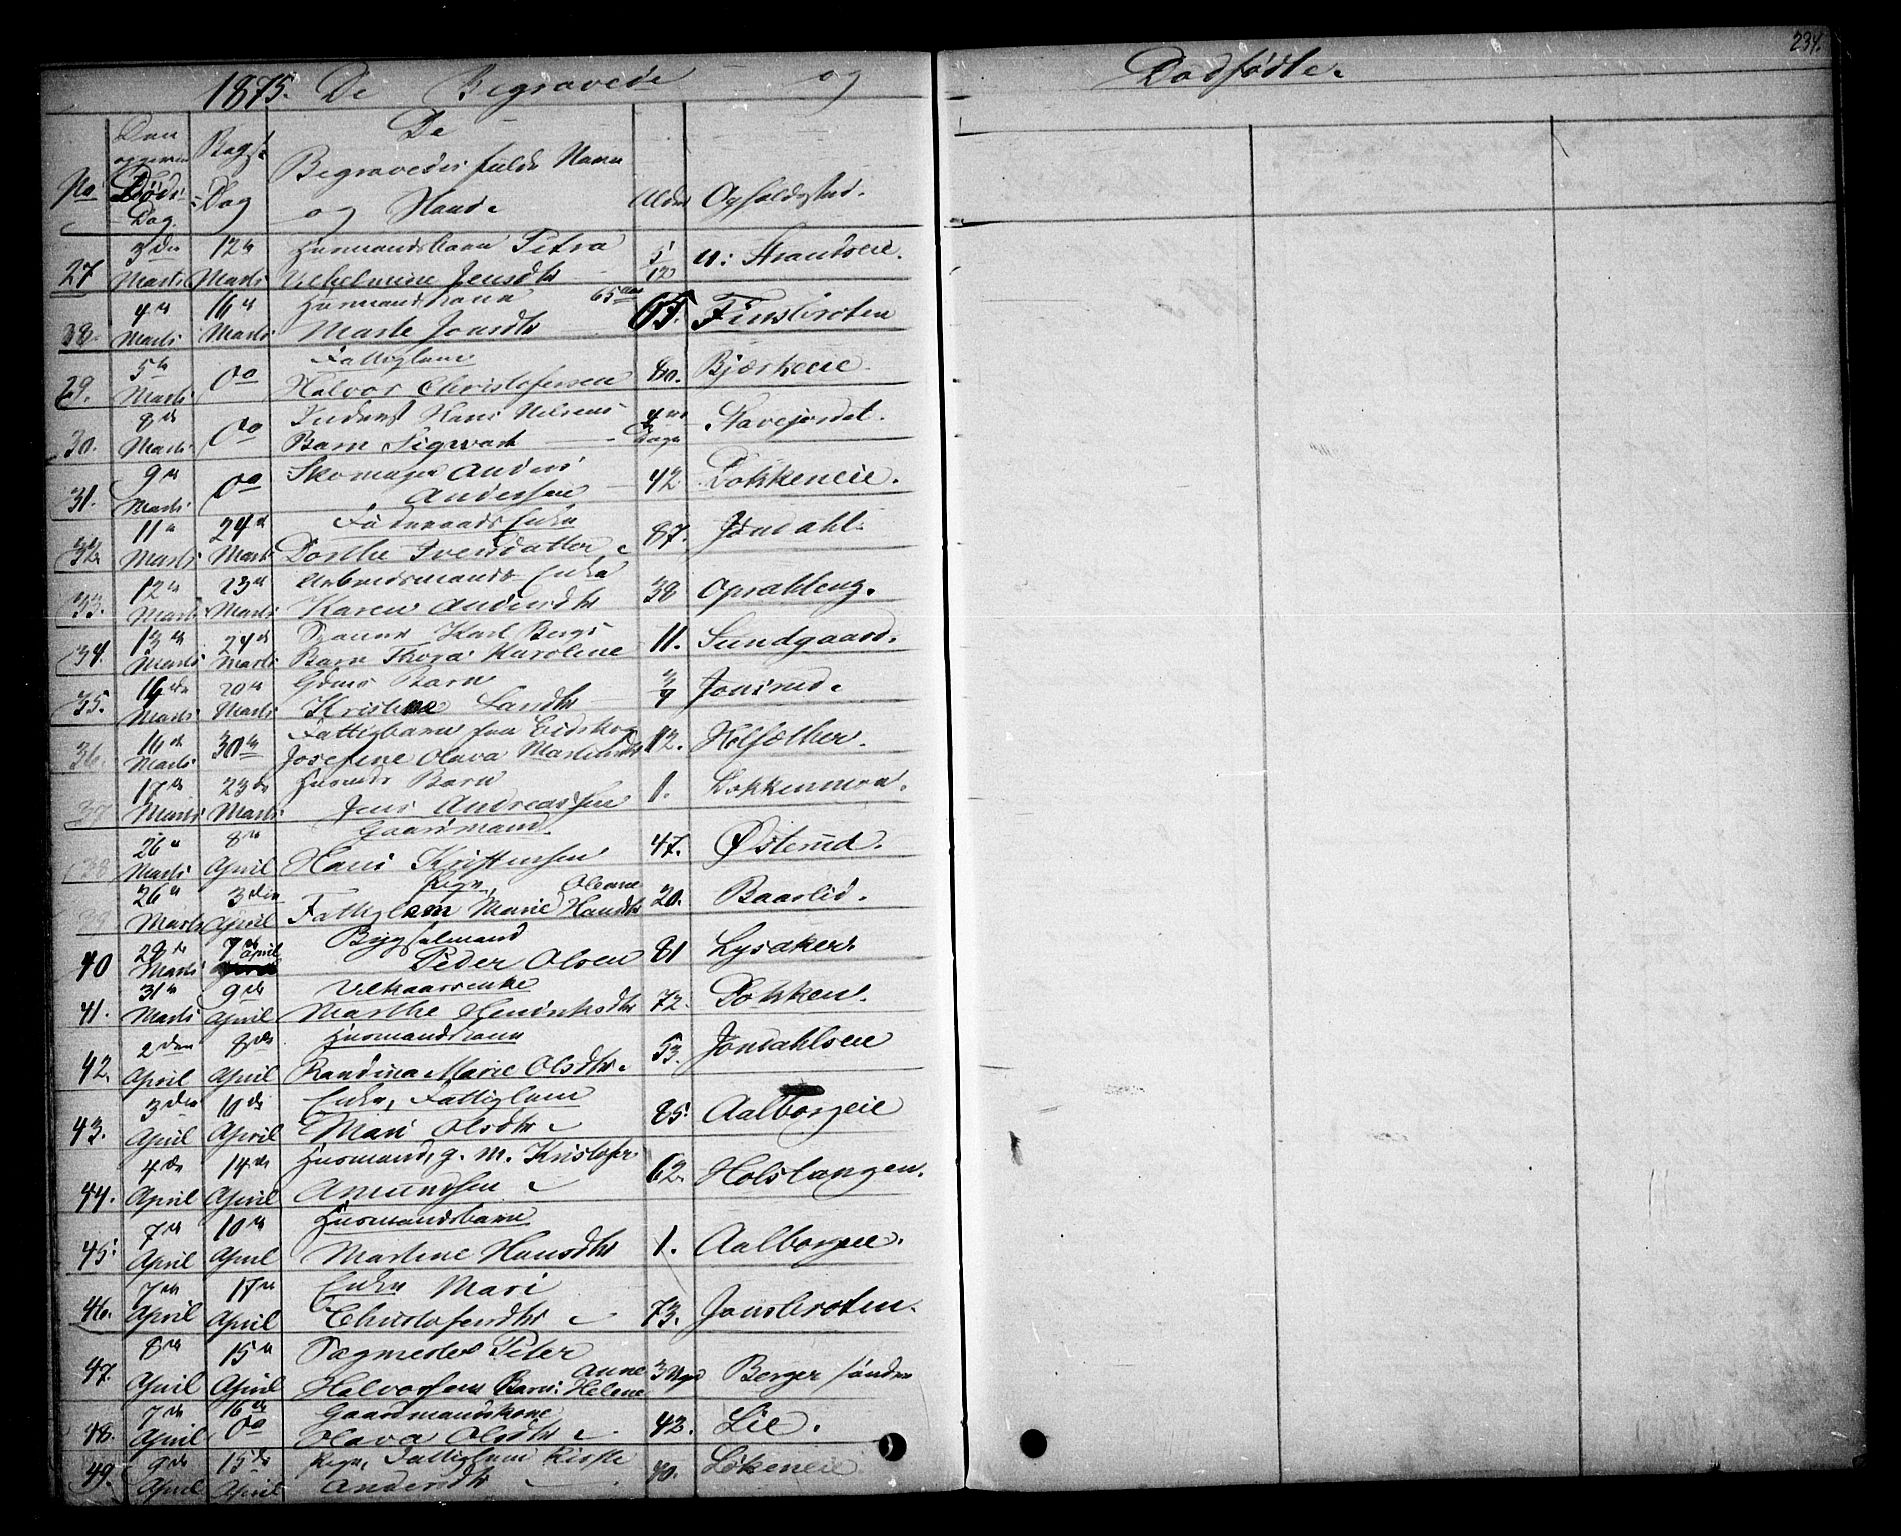 234.
1875. De Begravede og Dødfødte.
No
Den
Døds-
Dag.
Begr.
Dag
De
Begravedes fulde Navn
og Stand
Alder
Opholdsted.
27 3die Marts 12te Marts Husmandsbarn Petra
Vilhelmine Jensdtr 5/12 u: Strandseie.
28. 4de Marts 16de Marts Husmandskone 65 aar
Marte Jonsdtr 65. Finsbroten
29. 5te Marts Do Fattiglem
Halvor Christofersen 80. Bjerkeeie.
30. 8de Marts Do Inderst Hans Nilsens
Barn Sigwart 4 Dage Stavejordet.
31. 9de Marts Do Skomager Anders
Andersen 42 Dokkeneie.
32. 11te Marts 24de Marts Føderaads Enke
Dorthe Svensdatter 87. Jøndahl.
33. 12te Marts 23de Marts Arbeidsmands Enke
Karen Andersdtr 38 Opsahleng.
34. 13de Marts 24de Marts Karl Bergs
Barn Thora Karoline 11. Sundgaard.
35. 14de Marts 20de Marts Gdmds Barn
Kristine Larsdtr 3/4 Jonsrud.
36. 16de Marts 30te Fattigbarn fra Eidskog
Josefine Olava Martinsdtr 12. Holsæther.
37. 17de Marts 23de Marts Husmds Barn
Jens Andreassen 1. Dokkenmoa.
38. 26de Marts 8de April Gaardmand
Hans Kristensen 47. Østerud.
39. 26de Marts 3die April Pige, Oleane
Fattiglem Marie Hansdtr 20. Baaslid.
40 29de Marts 7de April Bygselmand
Peder Olsen 81 Lysaker.
41. 31te Marts 9de April Vilkaarsenke
Marthe Henriksdtr 72. Dokken.
42. 2den April 8de April Husmandskone
Randina Marie Olsdtr. 53. Jøndahlseie
43. 3die April 10de April Enke, Fattiglem
Mari Olsdtr 85. Aalborgeie
44. 4de April 14de April Husmand, g. m. Kristofer
Amundsen 62. Holslangen.
45. 7de April 10de April Husmandsbarn
Martine Hansdtr 1. Aalborgeie.
46. 7de April 17de April Enke Mari
Christofersdtr 73. Jonsbroten.
47. 8de April 15de April Sagmester Peter
Halvorsens Barn: Anne Helene 3 Uger Berger søndre
48. 7de April 16de Do Gaardmandskone
Olava Olsdtr 42. Lie.
49. 9de April 15de April Pige, Fattiglem Kirste
Andersdtr 40. Løkeneie